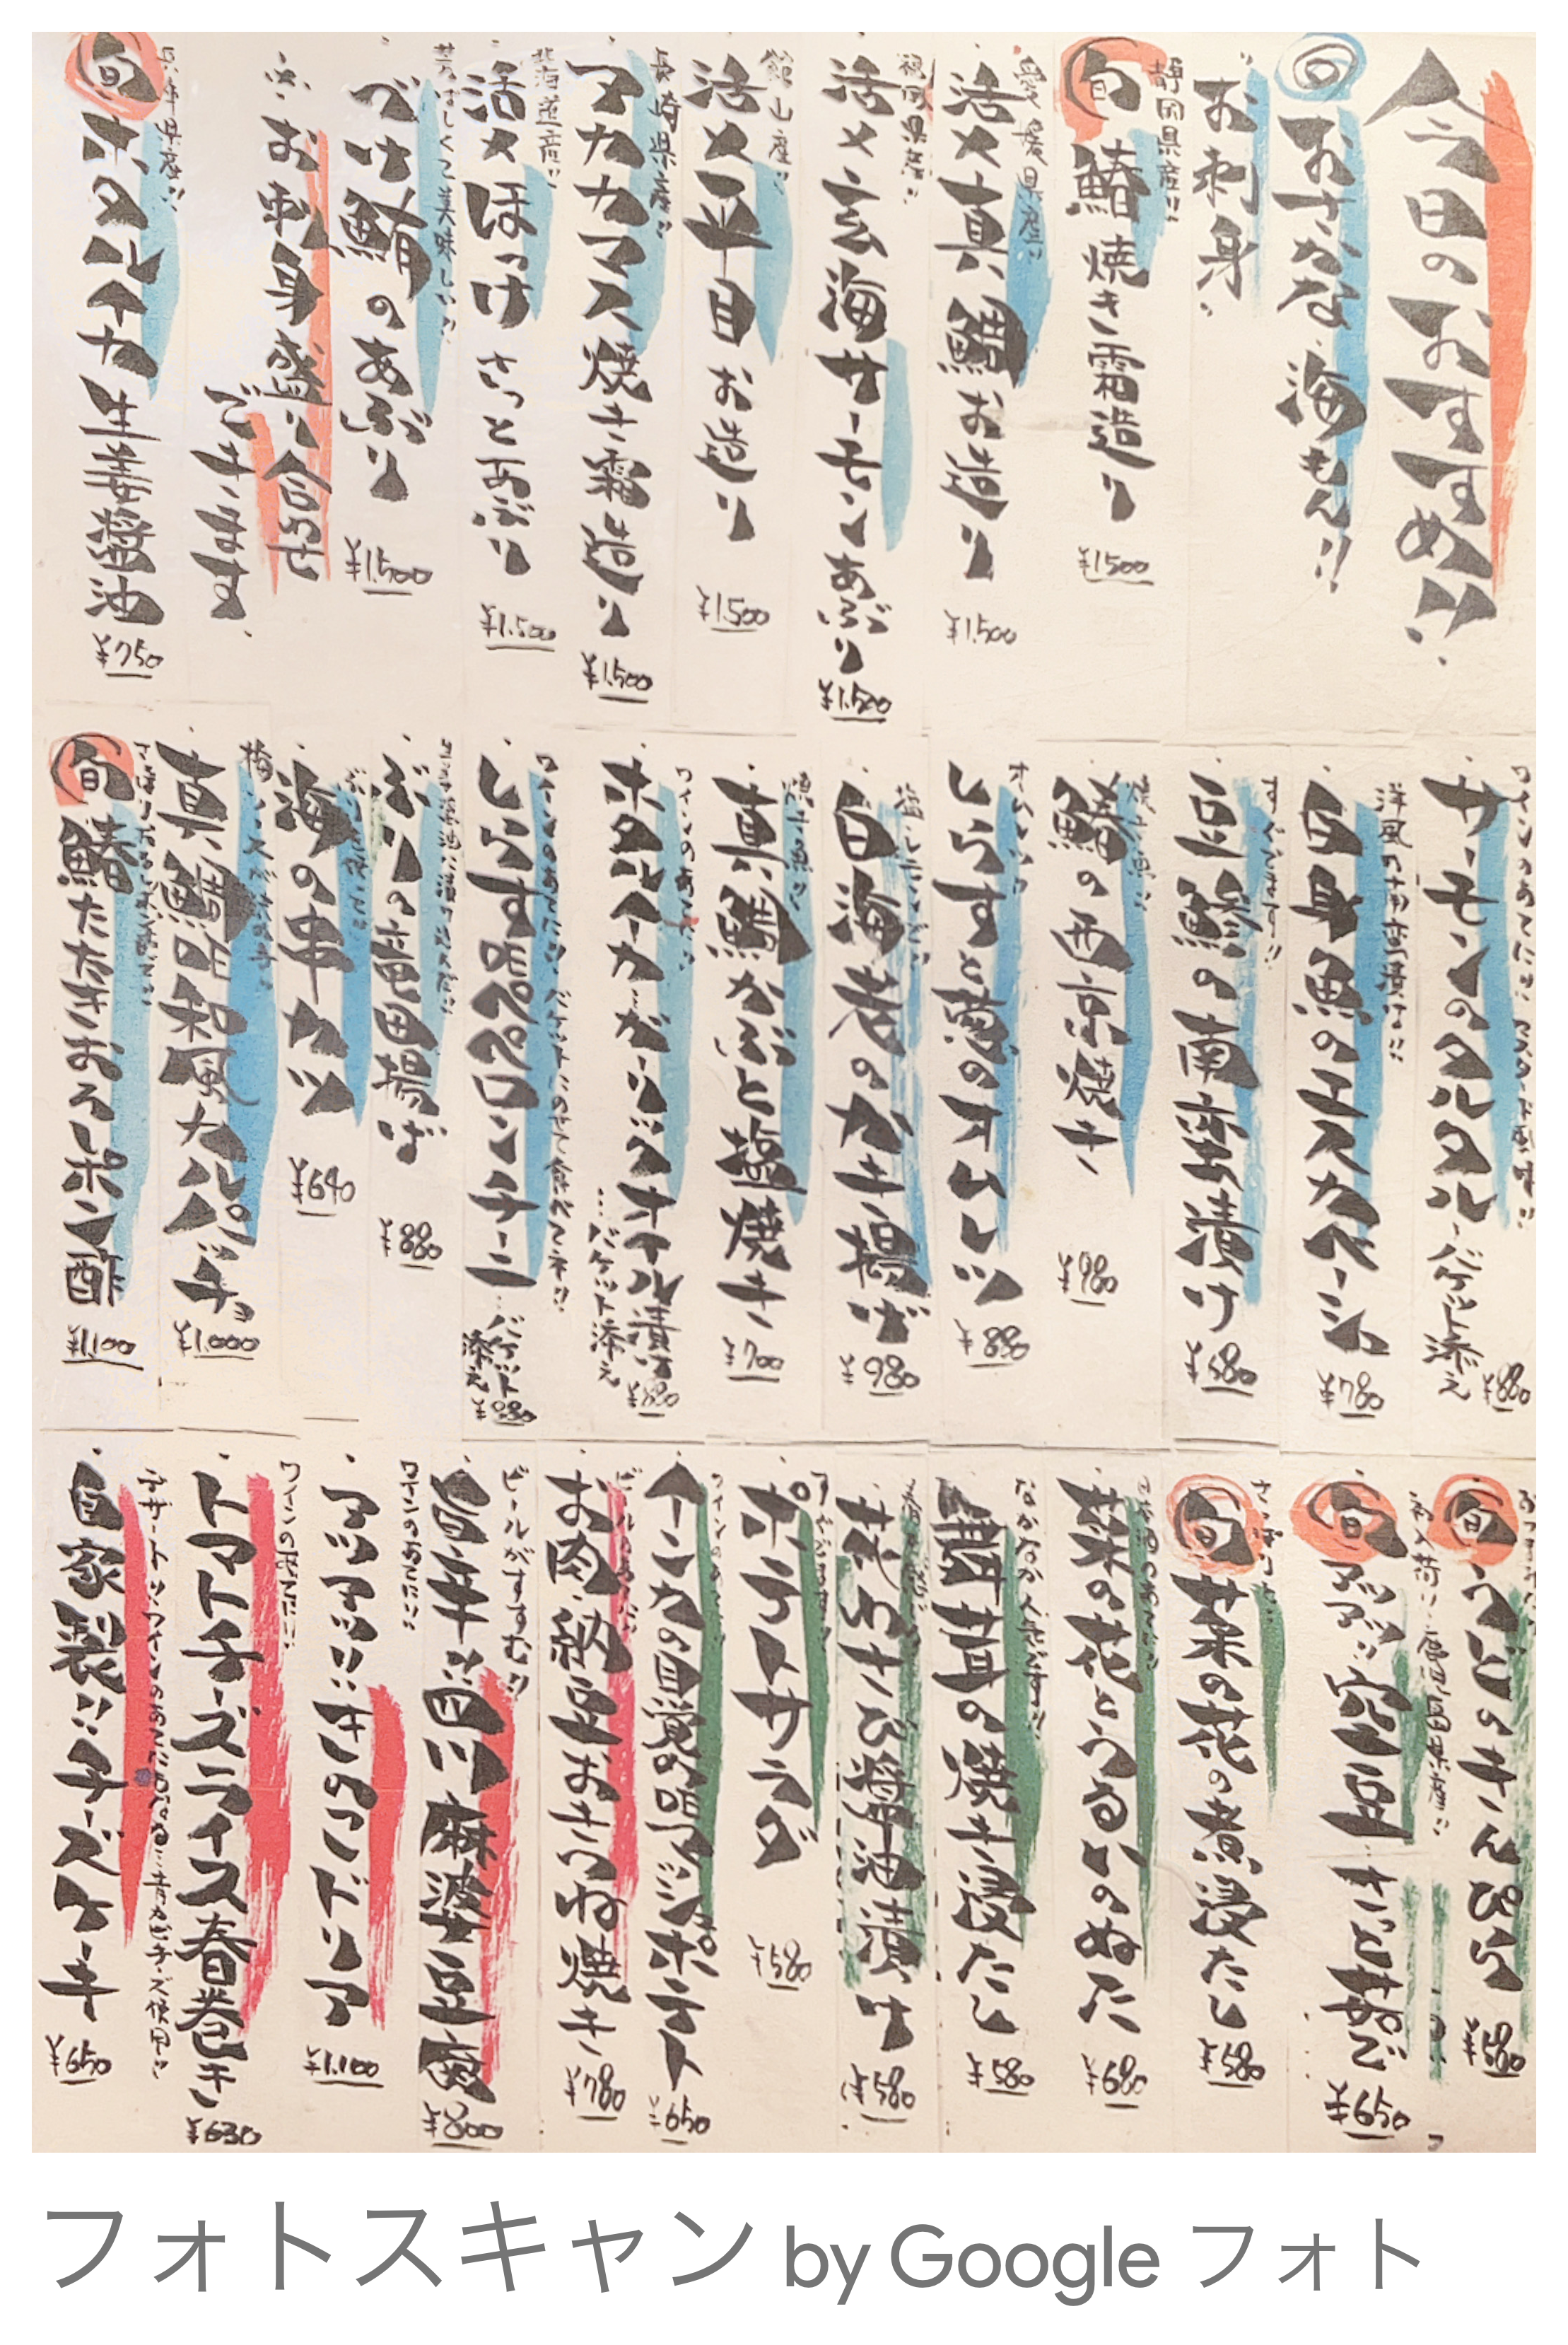 今日のおすすめ!!
旬 おさかな、海もん!!
お刺身
静岡県産!!
旬 鰆 焼き霜造り ¥1,500
愛媛県産!!
活〆真鯛お造り ¥1,500
福岡県産!!
活〆玄海サーモンあぶり ¥1,500
館山産!!
活〆平目お造り ¥1,500
長崎県産!!
アカカマス焼き霜造り ¥1,500
北海道産!!
活〆ほっけ さっとあぶり ¥1,500
芳ばしくて美味しい!!
びん鮪のあぶり ¥1,500
お刺身盛り合わせ
できます
兵庫県産!!
旬 ホタルイカ生姜醤油 ¥750
ワインのあてに!! マスタード風味!!
サーモンのタルタル バゲット添え ¥880
洋風の南蛮漬け!!
白身魚のエスカベーシュ ¥780
すぐ出ます!!
豆鯵の南蛮漬け ¥680
焼き魚!!
鰆の西京焼き ¥980
オムレツ!!
しらすと葱のオムレツ ¥880
白海老のかき揚げ ¥980
焼き魚!!
真鯛かぶと塩焼き ¥700
ワインのあてに!!
ホタルイカ ガーリックオイル漬け
…バゲット添え ¥880
しらすDEペペロンチーニ
…バゲット添え ¥880
ぶりの竜田揚げ ¥880
海の串カツ ¥640
真鯛DE和風カルパッチョ ¥1,000
旬 鰆たたきおろしポン酢 ¥1,100
旬 うどのきんぴら ¥580
初入荷!! 鹿児島県産!!
旬 空豆 ¥650
旬 菜の花の煮浸たし ¥580
菜の花とつぶがいのぬた ¥680
舞茸の焼き浸たし ¥580
花わさび醤油漬け ¥580
ポテトサラダ ¥580
インカの目覚めDEアンポテト ¥650
お肉納豆おきつね焼き ¥780
ビールがすすむ!!
旨辛 四川麻婆豆腐 ¥800
ワインのあてに!!
アツアツ!! きのこドリア ¥1,100
ワインのあてに!!
トマトチーズライス春巻き ¥630
デザート!! ワインのあてにもなる 青カビチーズ使用!!
自家製!! チーズケーキ ¥650
フォトスキャン by Google フォト